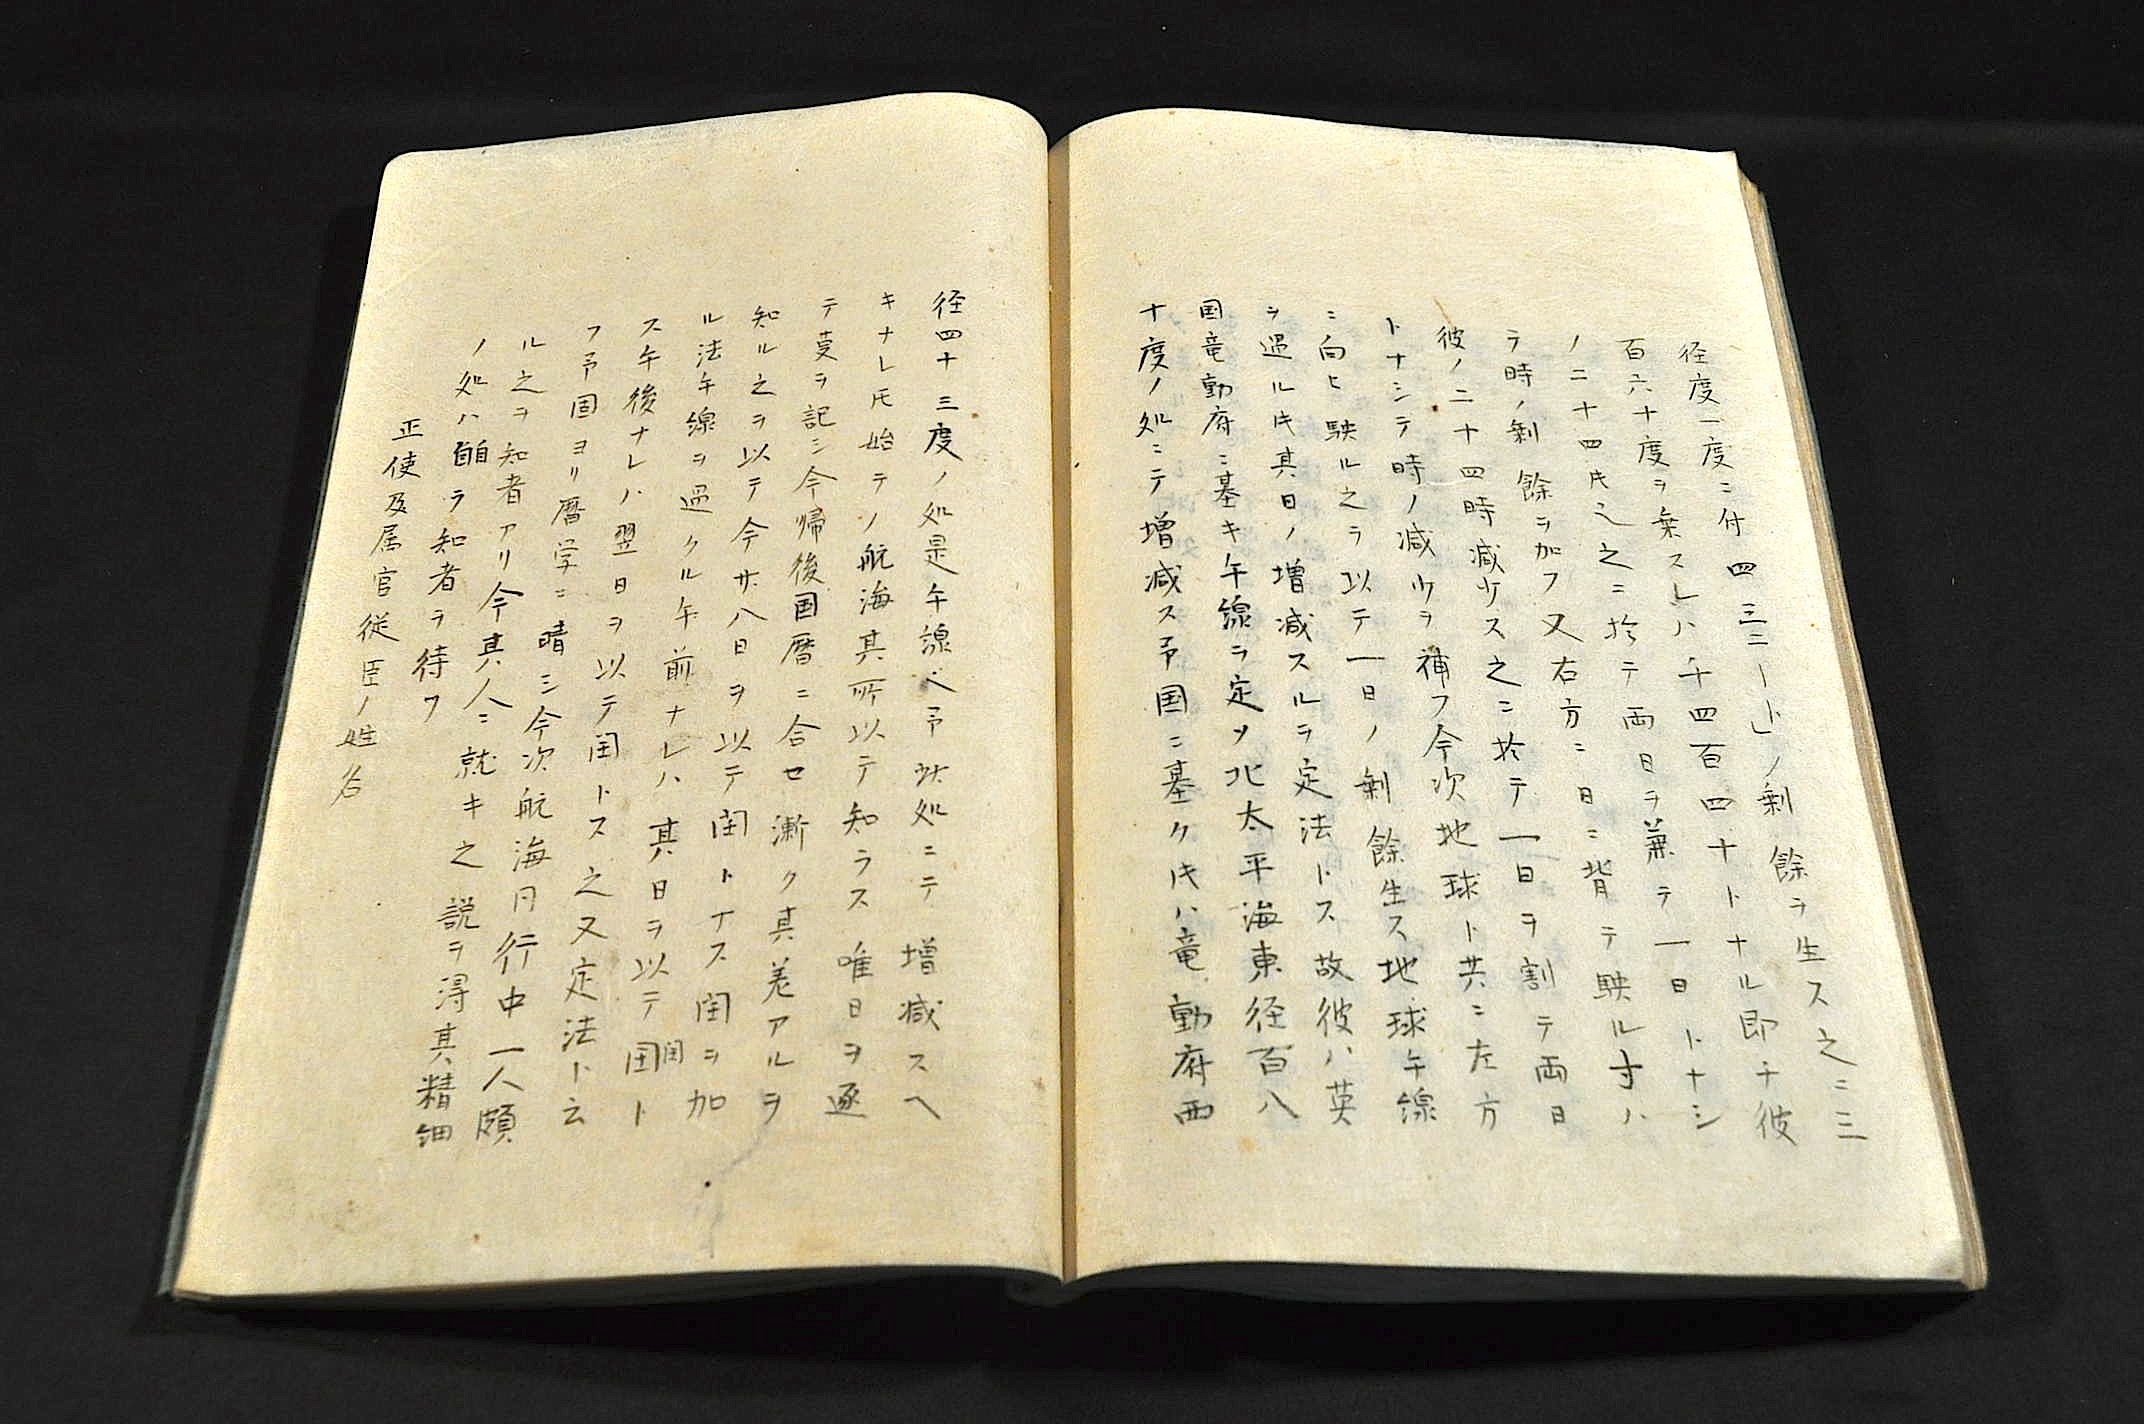 径度一度ニ付四ミニート」ノ剰餘ヲ生ス之ニ三
百六十度ヲ乗スレハ千四百四十トナル即チ彼
ノ二十四時之ニ於テ両日ヲ兼テ一日トナシ
ラ時ノ剰餘ヲ加フ又右方ニ日ニ背テ駛ル寸ハ
彼ノ二十四時減少ス之ニ於テ一日ヲ割テ両日
トナシテ時ノ減少ヲ補フ今次地球ト共ニ左方
ニ向ヒ駛ル之ラ以テ一日ノ剰餘生ス地球午線
ヲ過ル寸其日ノ増減スルヲ定法トス故彼ハ英
国竜動府ニ基キ午線ヲ定ソ北太平海東径百八
十度ノ処ニテ増減ス予国ニ基ク寸ハ竜動府西
径四十三度ノ処是午線也予此処ニテ増減スヘ
キナレ𪜈始テノ航海其所以テ知ラス唯日ヲ逐
テ支ヲ記シ今帰後国暦ニ合セ漸ク其差アルヲ
知ル之ヲ以テ今廿八日ヲ以テ閏トナス閏ヲ加
ル法午線ヲ過クル午前ナレハ其日ヲ以テ閏ト
ス午後ナレハ翌日ヲ以テ閏トス之又定法ト云
フ予固ヨリ暦学ニ晴シ今次航海同行中一人頗
ル之ヲ知者アリ今其人ニ就キ之説ヲ得其精細
ノ処ハ自ラ知者ヲ待ツ
正使及属官従臣ノ姓名